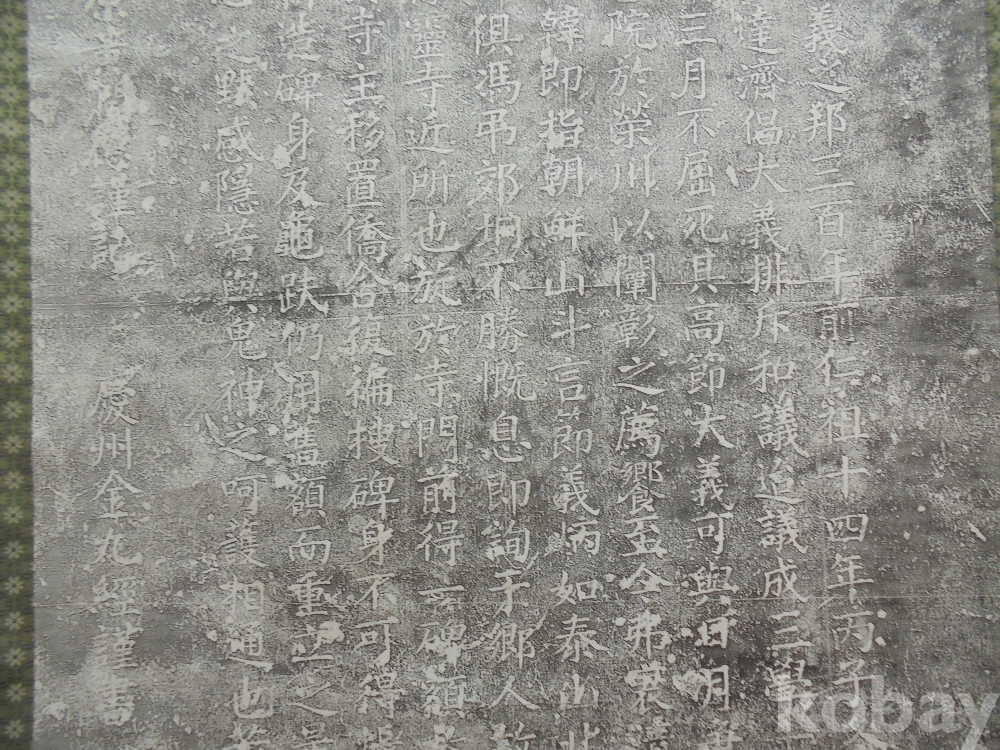 義之邦三百年前仁祖十四年丙子
達濟倡大義排斥和議迨議成三學
三月不屈死其高節大義可與日月
院於榮川以闡彰之薦饗至今弗衰
韓卽指朝鮮山斗言節義炳如泰山北
俱馮弔郊坰不勝慨息卽詢于鄉人
靈寺近所也旋於寺門前得一碑額
寺主移置僑舍復徧搜碑身不可得
造碑身及龜趺仍用舊額而重立之
之默感隱若與鬼神之呵護相通也
謹記 慶州金九經謹書
kobay